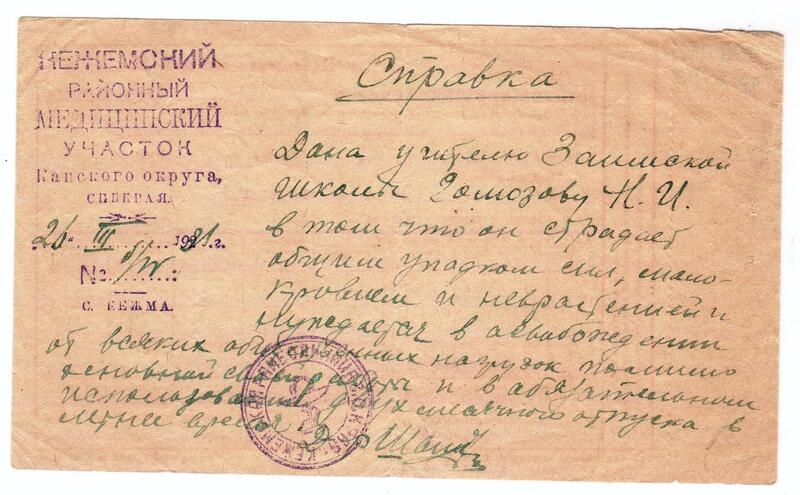 КЕЖЕМСКИЙ
РАЙОННЫЙ
МЕДИЦИНСКИЙ
УЧАСТОК
Канского округа,
СИБКРАЯ.
"26" III 1931 г.
№
с. КЕЖМА.
Справка
Дана учителю Заимской
школы Н. И.
в том что он страдает
общим упадком сил, мало-
кровием и неврастенией и
нуждается в освобождении
от всяких общественных нагрузок помимо
основной работы и в обязательном
использовании 2-ух месячного отпуска в
летнее время.